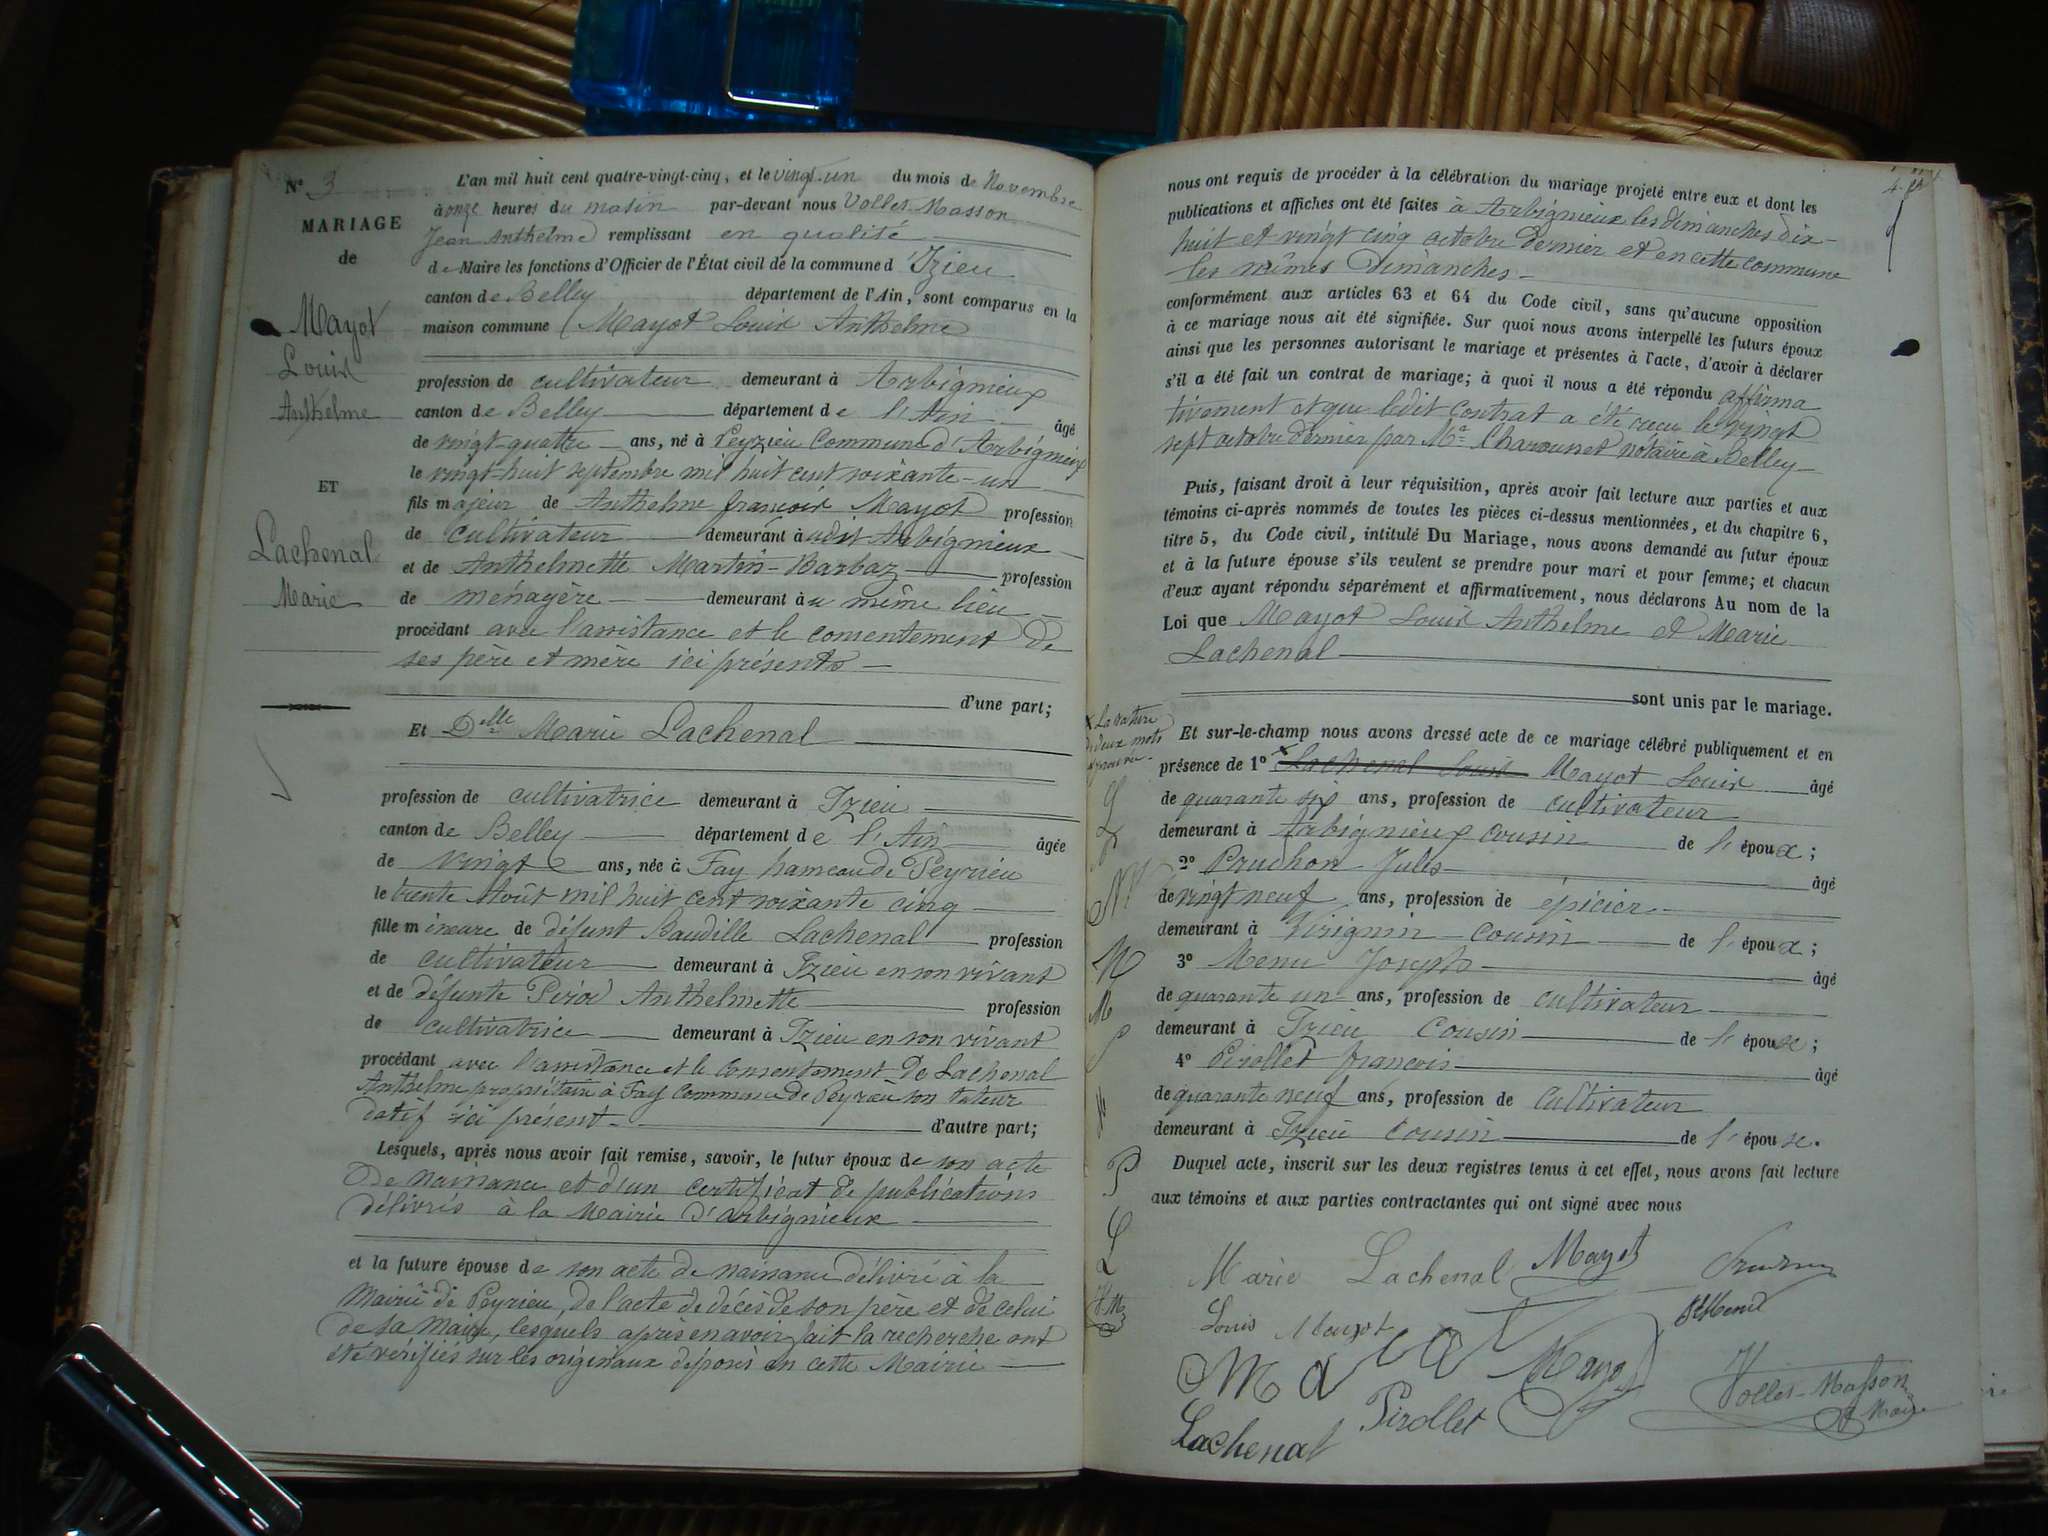 N° 3
MARIAGE
de
Mayot
Louis
Anthelme
ET
Lachenal
Marie
L'an mil huit cent quatre-vingt-cinq, et le vingt-un du mois de Novembre
à onze heures du matin par-devant nous Vollet-Masson
Jean Anthelme remplissant en qualité
de Maire les fonctions d'Officier de l'État civil de la commune d'Izieu
canton de Belley département de l'Ain, sont comparus en la
maison commune Mayot Louis Anthelme
profession de cultivateur demeurant à Arbignieux
canton de Belley département de l'Ain âgé
de vingt-quatre ans, né à Peyzieu Commune d'Arbignieux
le vingt-huit septembre mil huit cent soixante-un
fils majeur de Anthelme françois Mayot profession
de cultivateur demeurant à udit Arbignieux
et de Anthelmette Martin-Barbaz profession
de ménagère demeurant au même lieu
procédant avec l'assistance et le consentement de
ses père et mère ici présents
d'une part;
Et Delle Marie Lachenal
profession de cultivatrice demeurant à Izieu
canton de Belley département de l'Ain âgée
de vingt ans, née à Fay hameau de Peyrieu
le trente Août mil huit cent soixante cinq
fille mineure de défunt Baudille Lachenal profession
de cultivateur demeurant à Izieu en son vivant
et de défunte Anthelmette profession
de cultivatrice demeurant à Izieu en son vivant
procédant avec l'assistance et le consentement de Lachenal
Anthelme propriétaire à Fay Commune de Peyrieu son tuteur
datif ici présent d'autre part;
Lesquels, après nous avoir fait remise, savoir, le futur époux de son acte
de naissance et d'un certificat de publications
délivrés à la Mairie d'arbignieux
et la future épouse de son acte de naissance délivré à la
Mairie de Peyrieu, de l'acte de décès de son père et de celui
de sa mère, lesquels après en avoir fait la recherche ont
été vérifiés sur les originaux déposés en cette Mairie
nous ont requis de procéder à la célébration du mariage projeté entre eux et dont les
publications et affiches ont été faites à Arbignieux les dimanches dix-
huit et vingt cinq octobre dernier et en cette commune
les mêmes dimanches
conformément aux articles 63 et 64 du Code civil, sans qu'aucune opposition
à ce mariage nous ait été signifiée. Sur quoi nous avons interpellé les futurs époux
ainsi que les personnes autorisant le mariage et présentes à l'acte, d'avoir à déclarer
s'il a été fait un contrat de mariage; à quoi il nous a été répondu affirma
tivement et que ledit contrat a été reçu le vingt
sept octobre dernier par Me notaire à Belley
Puis, faisant droit à leur réquisition, après avoir fait lecture aux parties et aux
témoins ci-après nommés de toutes les pièces ci-dessus mentionnées, et du chapitre 6,
titre 5, du Code civil, intitulé Du Mariage, nous avons demandé au futur époux
et à la future épouse s'ils veulent se prendre pour mari et pour femme; et chacun
d'eux ayant répondu séparément et affirmativement, nous déclarons Au nom de la
Loi que Mayot Louis Anthelme et Marie
Lachenal
sont unis par le mariage.
x La rature
de deux mots
approuvée
Et sur-le-champ nous avons dressé acte de ce mariage célébré publiquement et en
présence de 1° x Lachenal Louis Mayot Louis âgé
de quarante six ans, profession de cultivateur
demeurant à Arbignieux cousin de l'époux;
2° Pruchon Jules âgé
de vingt neuf ans, profession de épicier
demeurant à Virignin cousin de l'époux;
3° Menu Joseph âgé
de quarante un ans, profession de cultivateur
demeurant à Izieu Cousin de l'épouse;
4° Pirollet françois âgé
de quarante neuf ans, profession de Cultivateur
demeurant à Izieu Cousin de l'épouse.
Duquel acte, inscrit sur les deux registres tenus à cet effet, nous avons fait lecture
aux témoins et aux parties contractantes qui ont signé avec nous
Marie Lachenal Mayot
Louis Mayot
Mayot Mayot
Lachenal Pirollet Vollet-Masson
Maire